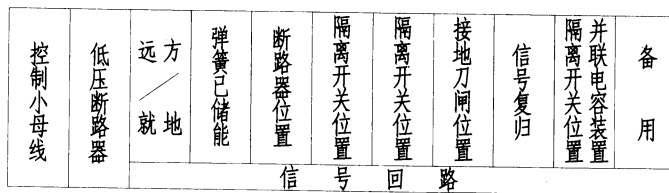 控制小母线
低压断路器
远方/就地
弹簧已储能
断路器位置
隔离开关位置
隔离开关位置
接地刀闸位置
信号复归
并联电容装置
隔离开关位置
备用
信号回路